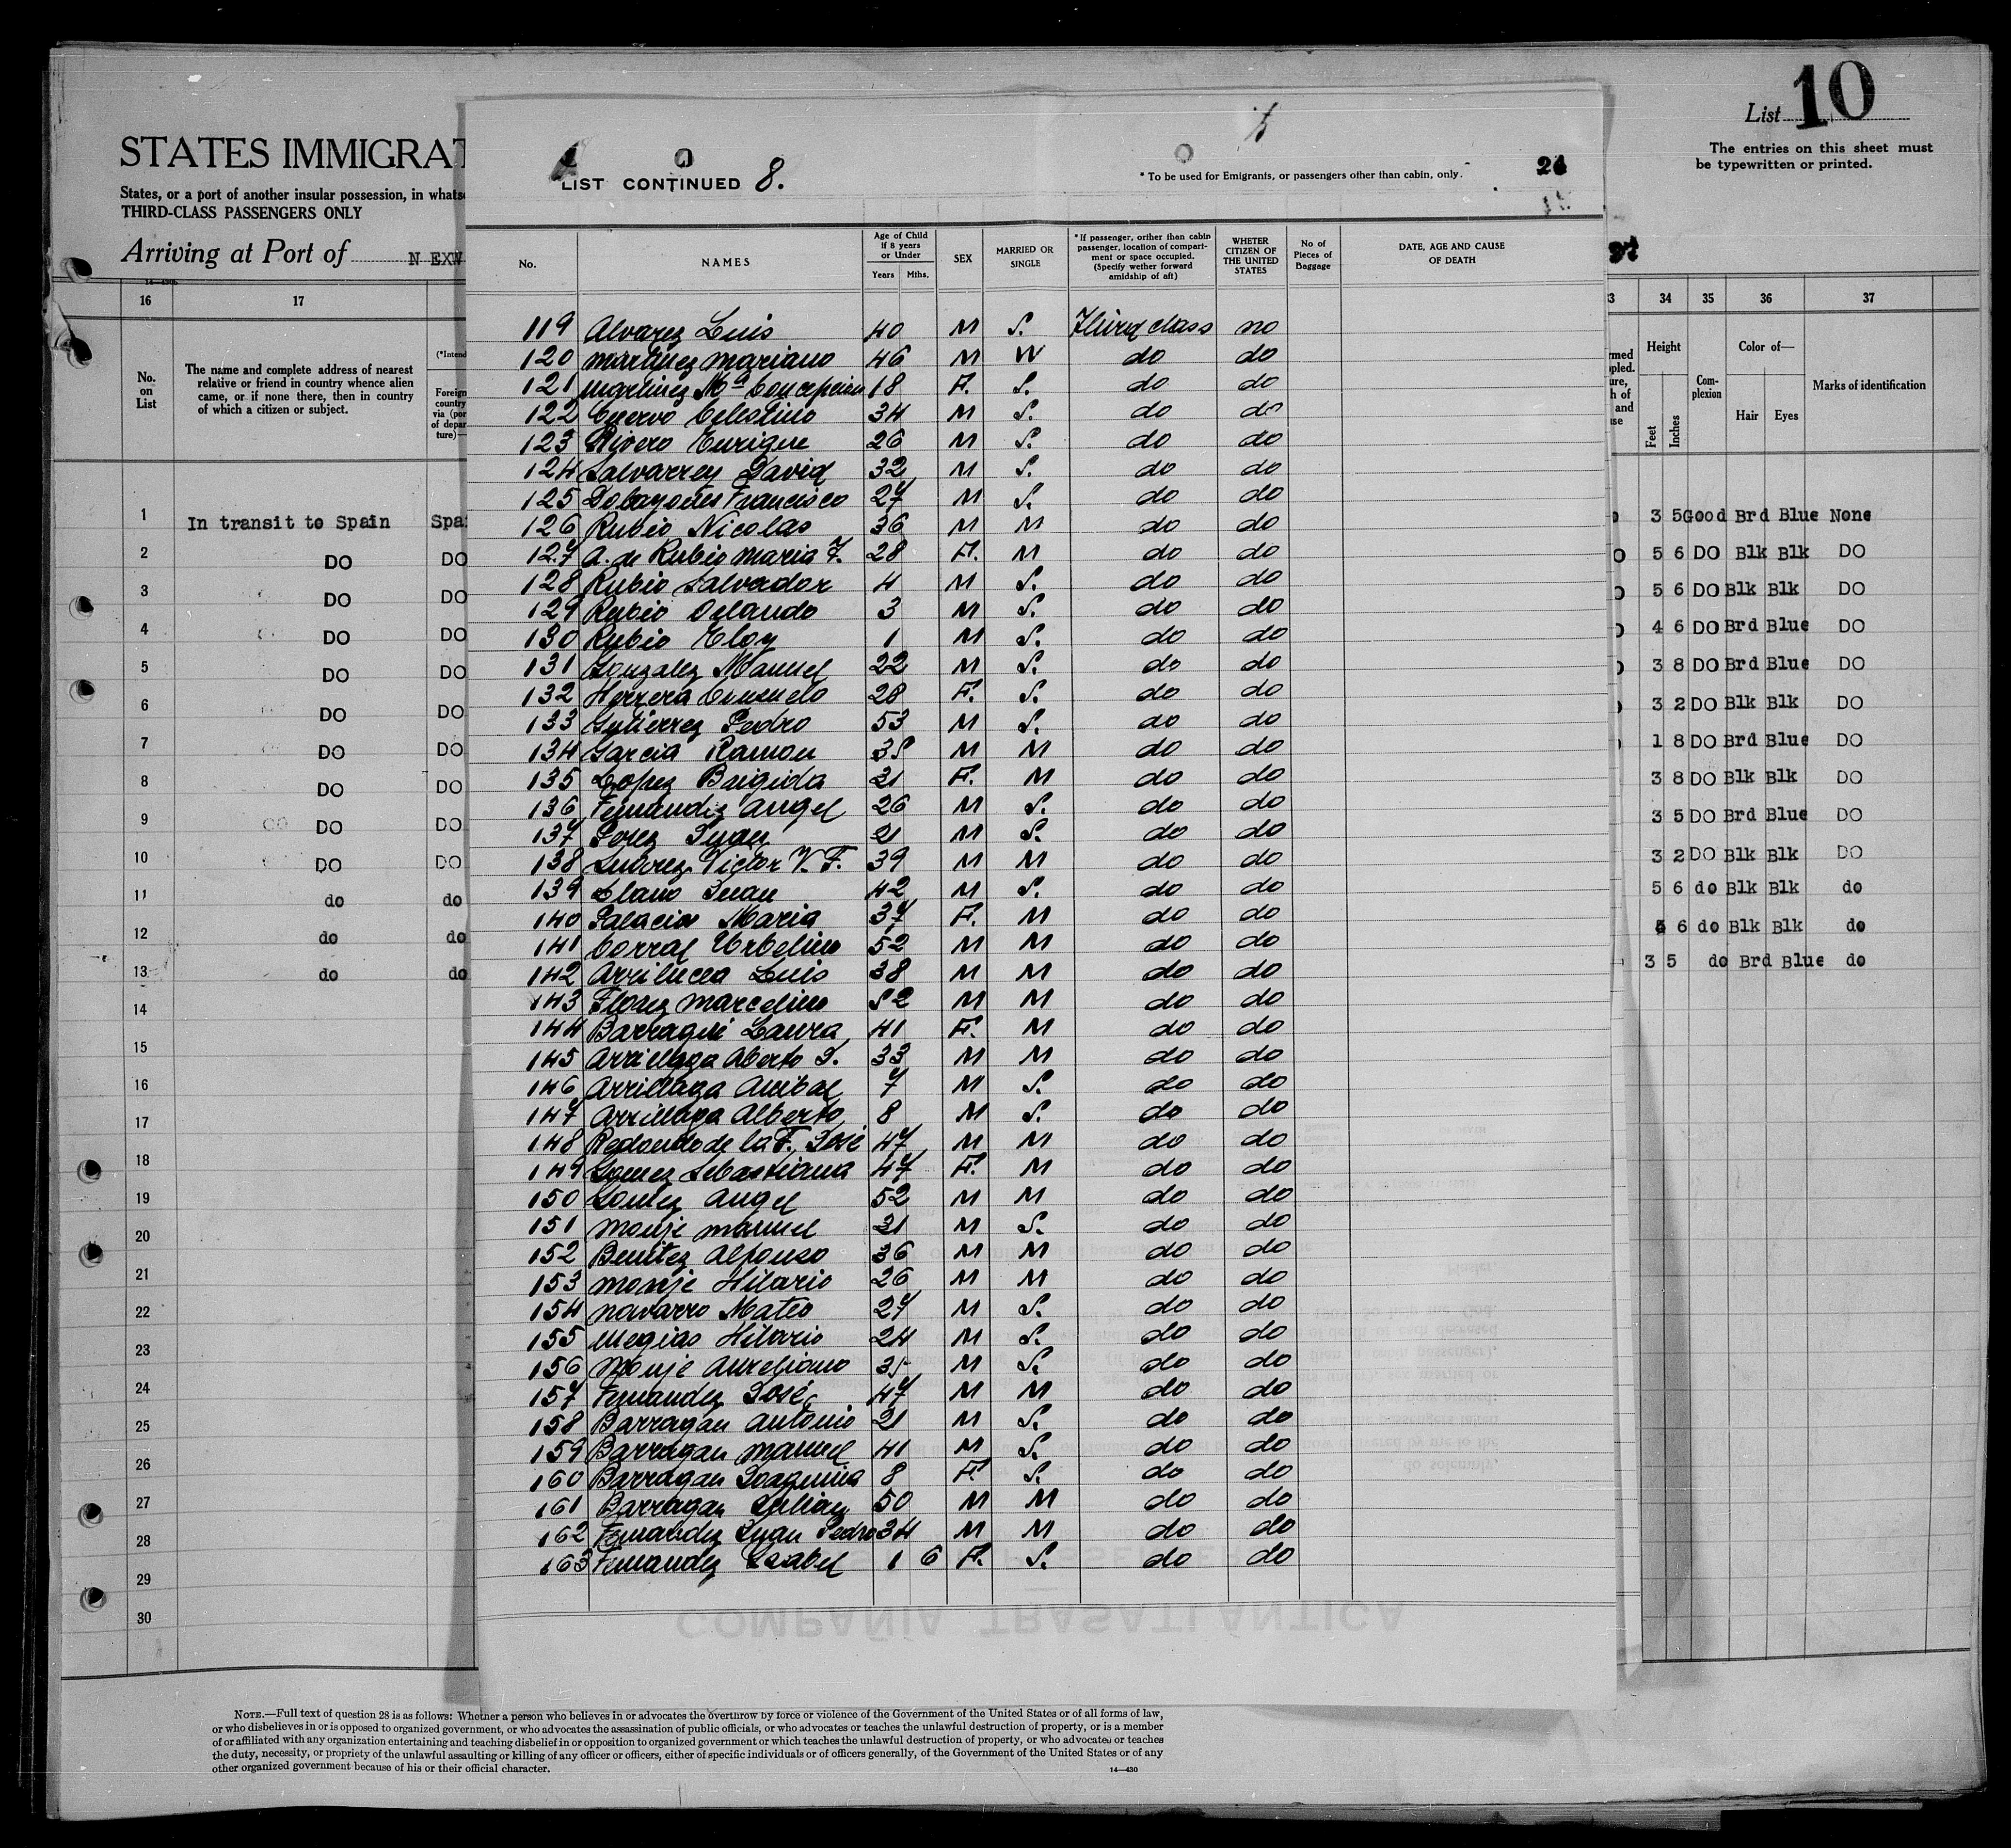 STATES IMMIGRAT
States, or a port of another insular possession, in whats
THIRD-CLASS PASSENGERS ONLY
Arriving at Port of N EXW
16 17
No. on List
The name and complete address of nearest relative or friend in country whence alien came, or if none there, then in country of which a citizen or subject.
(*Intend
Foreign country via (port of departure)—
1 In transit to Spain Spai
2 DO DO
3 DO DO
4 DO DO
5 DO DO
6 DO DO
7 DO DO
8 DO DO
9 DO DO
10 DO DO
11 do do
12 do do
13 do do
14
15
16
17
18
19
20
21
22
23
24
25
26
27
28
29
30
LIST CONTINUED 8.
* To be used for Emigrants, or passengers other than cabin, only.
No. NAMES Age of Child If 8 years or Under Years Mths. SEX MARRIED OR SINGLE *If passenger, orther than cabin passenger, location of compartment or space occupied. (Specify wether forward amidship of aft) WHETER CITIZEN OF THE UNITED STATES No of Pieces of Baggage DATE, AGE AND CAUSE OF DEATH
119 Alvarez Luis 40 M S. Third class no
120 Martinez Mariano 46 M W do do
121 Martinez Mª Concepcion 18 F. S. do do
122 Cuervo Celestino 34 M S. do do
123 Rivero Enrique 26 M S. do do
124 Salvarrey David 32 M S. do do
125 Francisco 27 M S. do do
126 Rubio Nicolas 36 M M do do
127 A. de Rubio Maria F. 28 F. M do do
128 Rubio Salvador 4 M S. do do
129 Rubio Orlando 3 M S. do do
130 Rubio Eloy 1 M S. do do
131 Gonzalez Manuel 22 M S. do do
132 Herrera Consuelo 28 F. S. do do
133 Gutierrez Pedro 53 M S. do do
134 Garcia Ramon 35 M M do do
135 Lopez Brigida 21 F. M do do
136 Fernandez Angel 26 M S. do do
137 Perez Juan 21 M S. do do
138 Suarez Victor V. F. 39 M M do do
139 Llano Juan 42 M S. do do
140 Palacio Maria 37 F. M do do
141 Corral Urbelino 52 M M do do
142 Arrilucea Luis 38 M M do do
143 Florez Marcelino 52 M M do do
144 Barragui Laura 41 F. M do do
145 Arrillaga Aberto J. 33 M M do do
146 Arrillaga Anibal 7 M S. do do
147 Arrillaga Alberto 8 M S. do do
148 Redondo de la F. José 47 M M do do
149 Gomez Sebastiana 47 F. M do do
150 Gomez Angel 52 M M do do
151 Monje Manuel 21 M S. do do
152 Benitez Alfonso 36 M M do do
153 Monje Hilario 26 M M do do
154 Navarro Mateo 27 M S. do do
155 Megias Hilario 24 M S. do do
156 Monje Aureliano 35 M S. do do
157 Fernandez José 47 M M do do
158 Barragan Antonio 21 M S. do do
159 Barragan Manuel 41 M S. do do
160 Barragan Joaquina 8 F S. do do
161 Barragan Julian 50 M M do do
162 Fernandez Juan Pedro 34 M M do do
163 Fernandez Isabel 1 6 F. S. do do
COMPAÑIA TRASATLANTICA
List 10
The entries on this sheet must be typewritten or printed.
34 35 36 37
Height Feet Inches Complexion Color of— Hair Eyes Marks of identification
3 5 Good Brd Blue None
5 6 DO Blk Blk DO
5 6 DO Blk Blk DO
4 6 DO Brd Blue DO
3 8 DO Brd Blue DO
3 2 DO Blk Blk DO
1 8 DO Brd Blue DO
3 8 DO Blk Blk DO
3 5 DO Brd Blue DO
3 2 DO Blk Blk DO
5 6 do Blk Blk do
5 6 do Blk Blk do
3 5 do Brd Blue do
NOTE.—Full text of question 28 is as follows: Whether a person who believes in or advocates the overthrow by force or violence of the Government of the United States or of all forms of law,
or who disbelieves in or is opposed to organized government, or who advocates the assassination of public officials, or who advocates or teaches the unlawful destruction of property, or is a member
of or affiliated with any organization entertaining and teaching disbelief in or opposition to organized government or which teaches the unlawful destruction of property, or who advocates or teaches
the duty, necessity, or propriety of the unlawful assaulting or killing of any officer or officers, either of specific individuals or of officers generally, of the Government of the United States or of any
other organized government because of his or their official character.
14—430